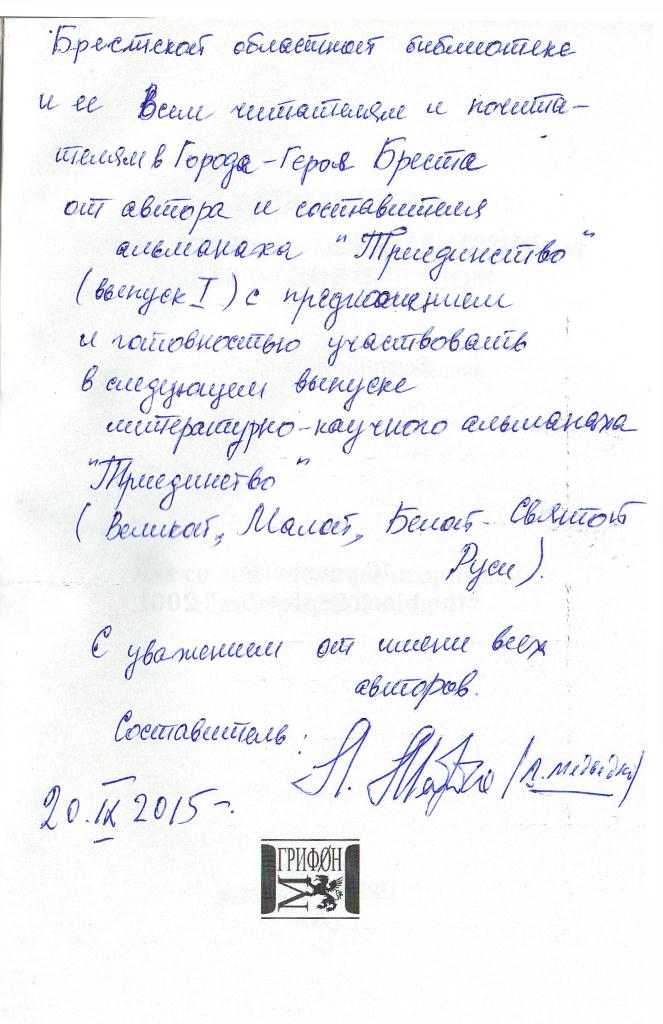 Брестской областной библиотеке
и ее Всем читателям и почита-
телям в Города-Героя Бреста
от автора и составителя
альманаха "Триединство"
(выпуск I) с предложением
и готовностью участвовать
в следующем выпуске
литературно-научного альманаха
"Триединство"
(Великой, Малой, Белой - Святой
Руси).
С уважением от имени всех
авторов.
Составитель:
20.IX 2015 г.
ГРИФОН
М